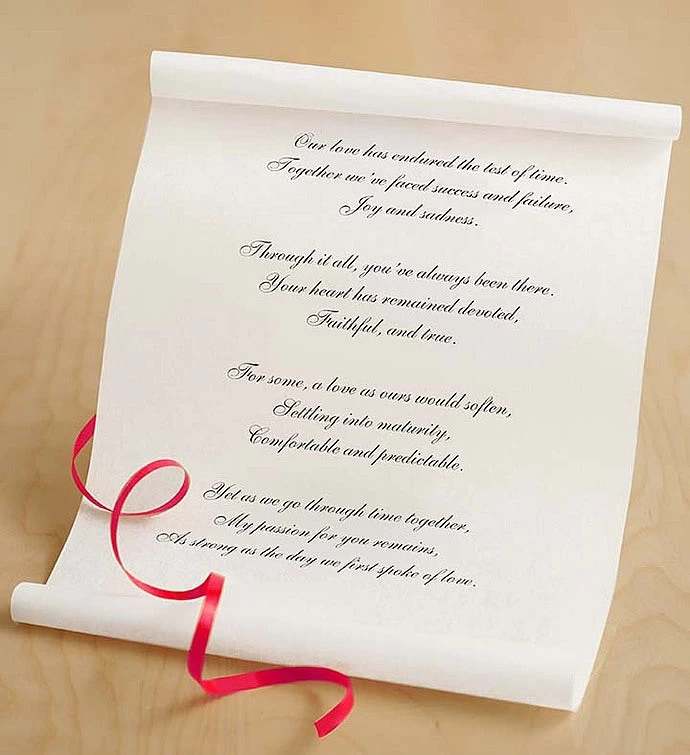 Our love has endured the test of time.
Together we've faced success and failure,
Joy and sadness.
Through it all, you've always been there.
Your heart has remained devoted,
Faithful, and true.
For some, a love as ours would soften,
Settling into maturity,
Comfortable and predictable.
Yet as we go through time together,
My passion for you remains,
As strong as the day we first spoke of love.